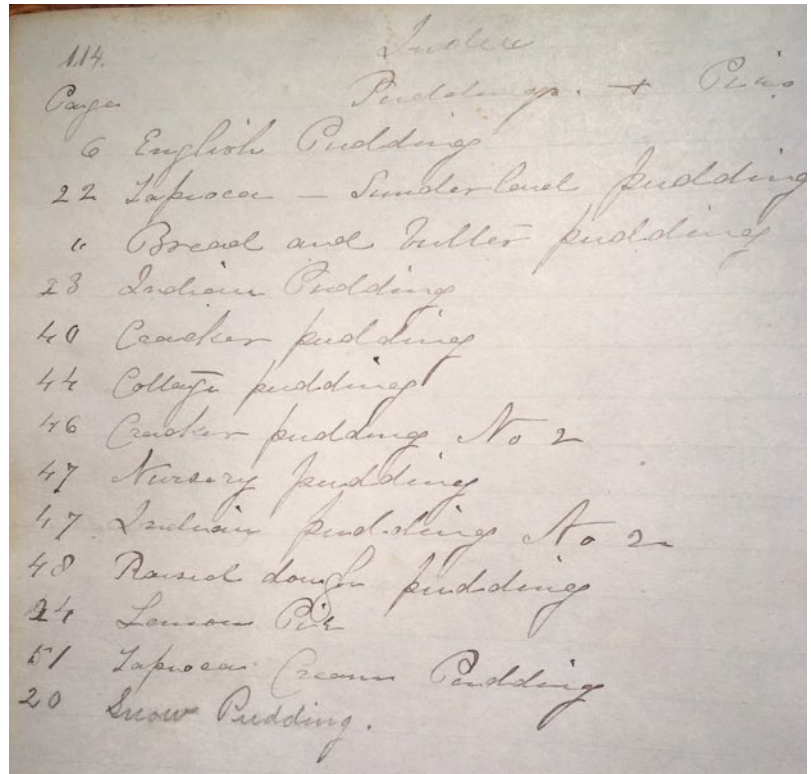 114.
Index
Page Puddings. + Pies
6 English Pudding
22 Tapioca - Sunderland pudding
" Bread and butter pudding
28 Indian Pudding
40 Cracker pudding
44 Cottage pudding
46 Cracker pudding No 2
47 Nursery pudding
47 Indian pudding No 2
48 Raised dough pudding
24 Lemon Pie
51 Tapioca Cream Pudding
20 Snow Pudding.